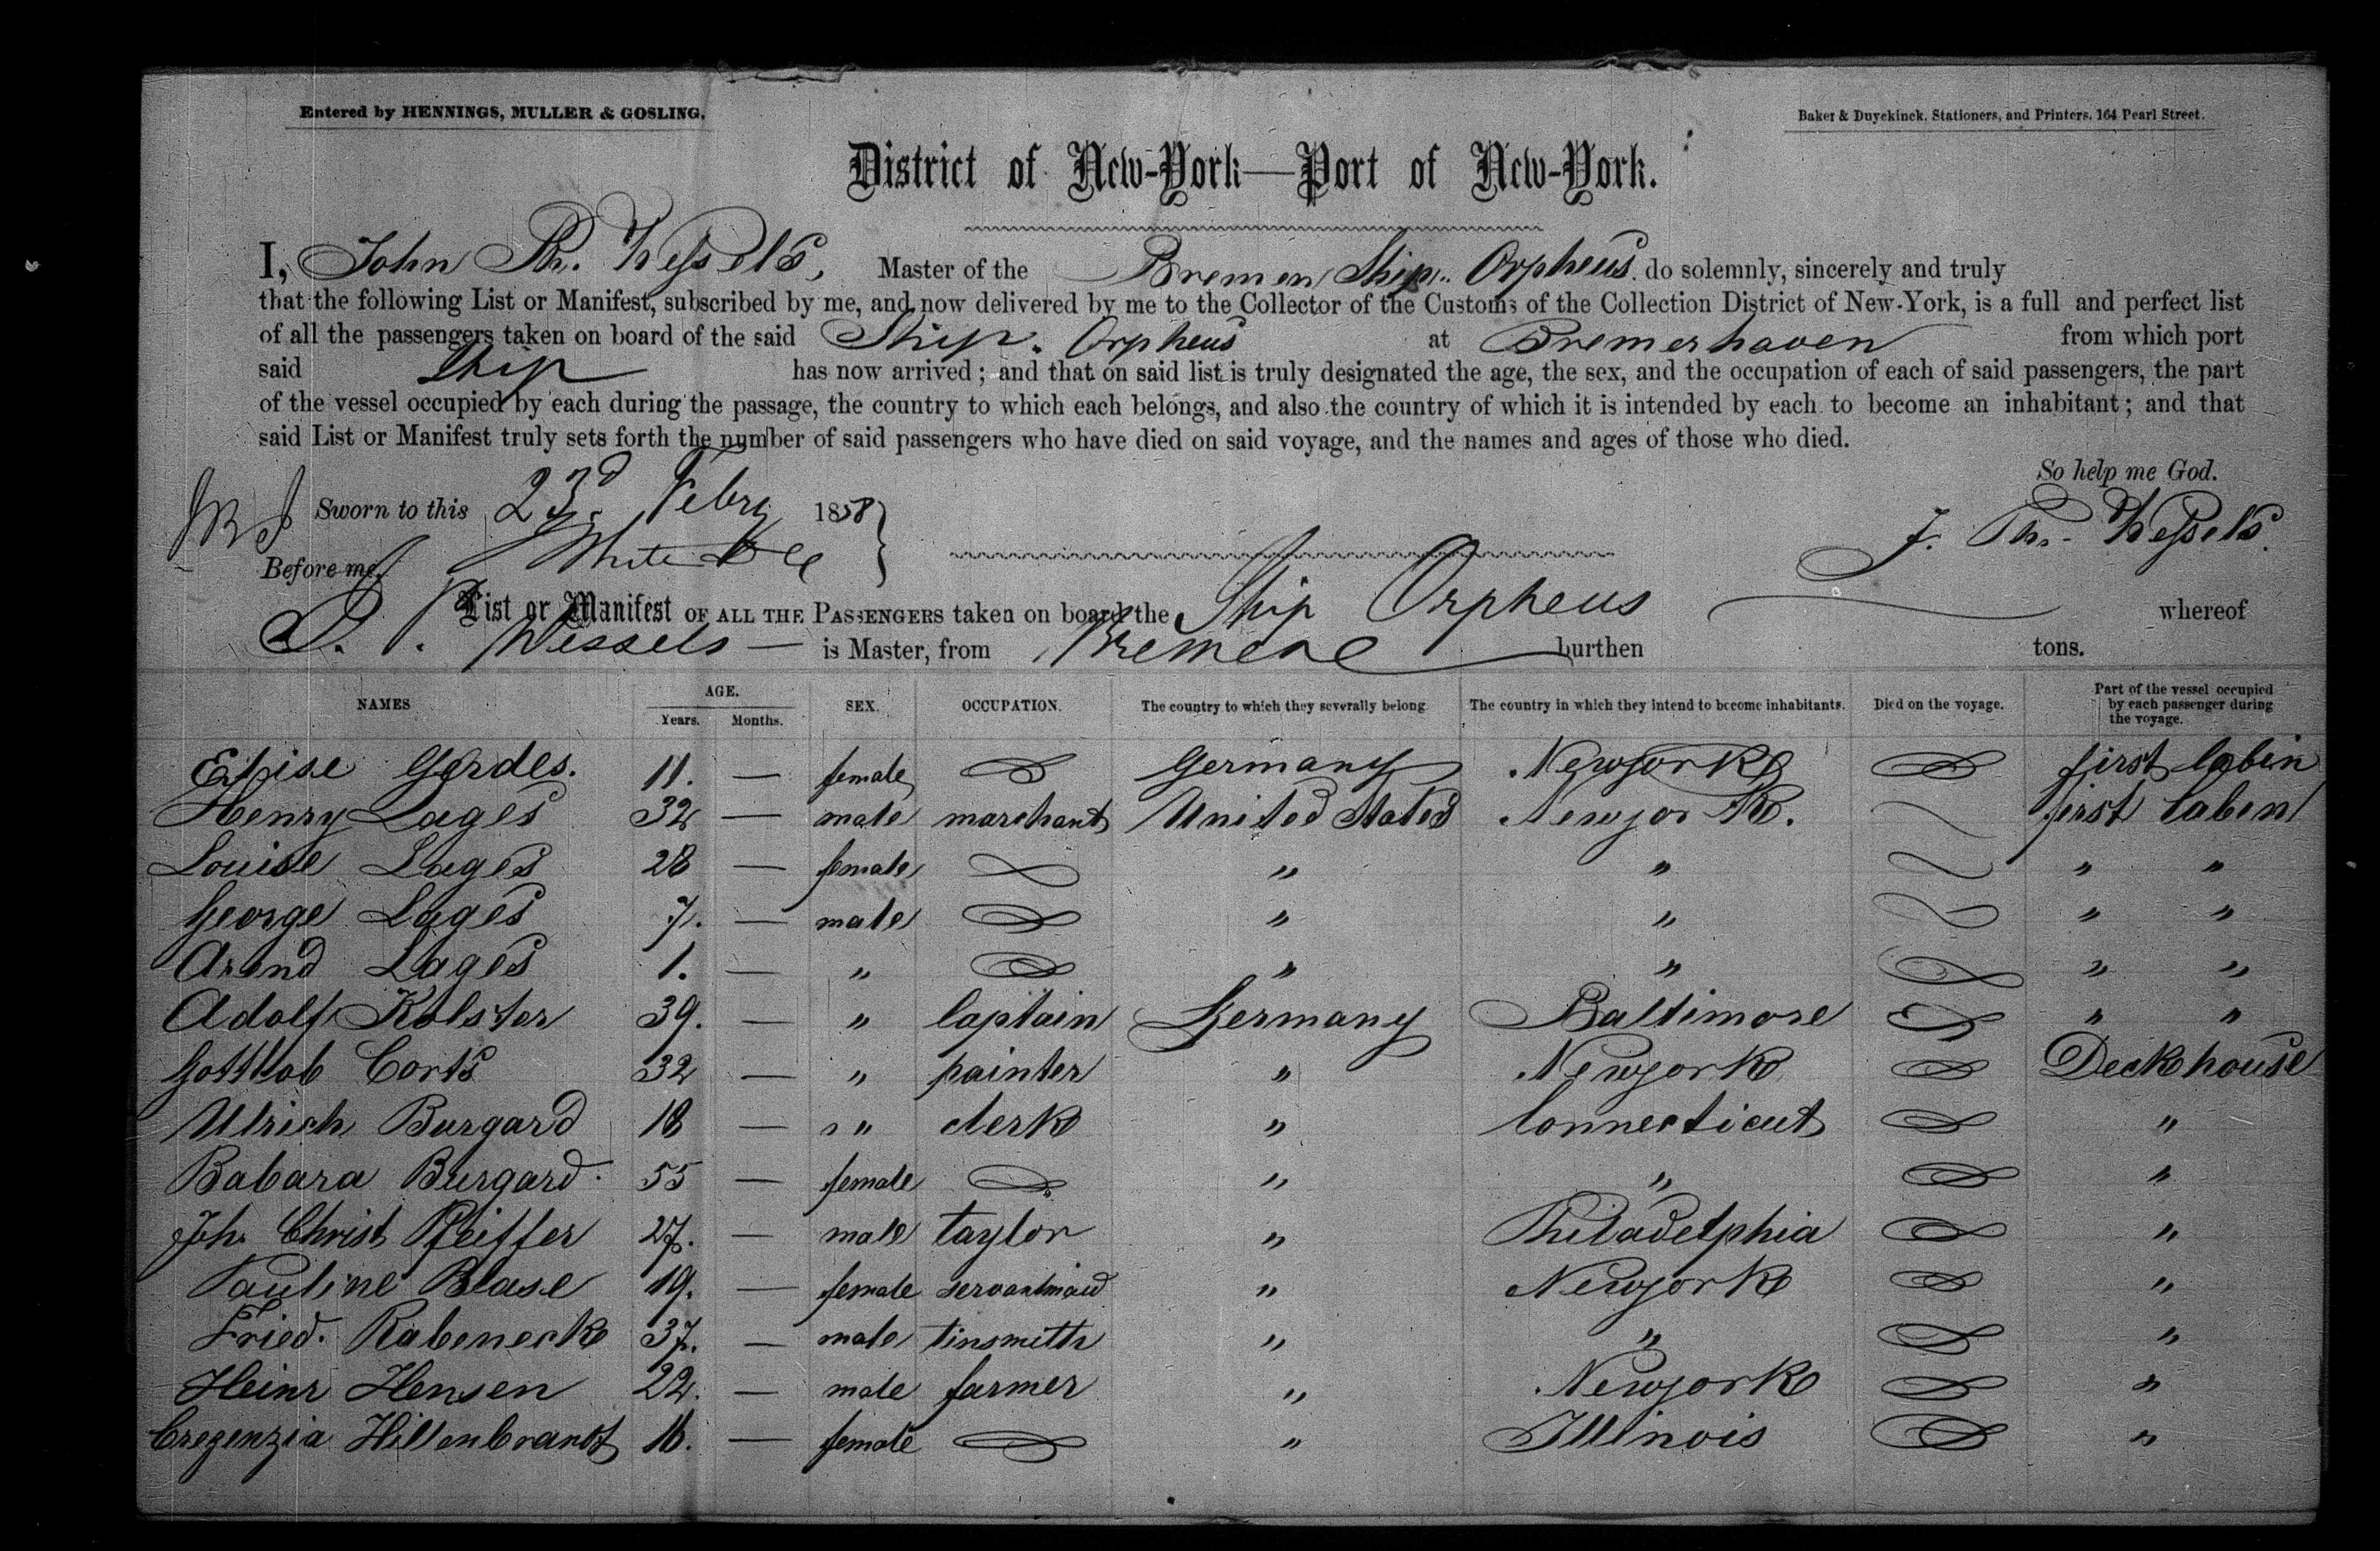 Entered by HENNINGS, MULLER & GOSLING.
Baker & Duyckinck, Stationers, and Printers, 164 Pearl Street.
District of New-York—Port of New-York.
I, John Ph. Wessels, Master of the Bremen Ship Orpheus do solemnly, sincerely and truly
that the following List or Manifest, subscribed by me, and now delivered by me to the Collector of the Customs of the Collection District of New-York, is a full and perfect list
of all the passengers taken on board of the said Ship. Orpheus at Bremerhaven from which port
said Ship has now arrived; and that on said list is truly designated the age, the sex, and the occupation of each of said passengers, the part
of the vessel occupied by each during the passage, the country to which each belongs, and also the country of which it is intended by each to become an inhabitant; and that
said List or Manifest truly sets forth the number of said passengers who have died on said voyage, and the names and ages of those who died.
So help me God.
Sworn to this 23d Febry 1858
J. Ph. Wessels
Before me,
List or Manifest OF ALL THE PASSENGERS taken on board the Ship Orpheus whereof
Wessels — is Master, from Bremen burthen tons.
NAMES AGE. Years. Months. SEX. OCCUPATION. The country to which they severally belong The country in which they intend to become inhabitants. Died on the voyage. Part of the vessel occupied by each passenger during the voyage.
Elise Gerdes. 11. — female Germany Newyork first Cabin
Henry Lages 32 — male marchant United States Newyork. first Caben
Louise Lages 28 — female " " " "
George Lages 7. — male " " " "
Arend Lages 1. — " " " " "
Adolf Kolster 39. — " Captain Germany Baltimore " "
Gottlob Corts 32 — " painter " Newyork Deckhouse
Ulrich Burgard 18 — " clerk " Connecticut "
Babara Burgard 55 — female " " "
Joh. Christ Pfeiffer 27. — male taylor " Philadelphia "
Pauline Blase 19. — female servantmaid " Newyork "
Fried. Rabeneck 37. — male tinsmith " " "
Heinr Hensen 22. — male farmer " Newyork "
Cregenzia Hillenbrandt 16. — female " Illinois "